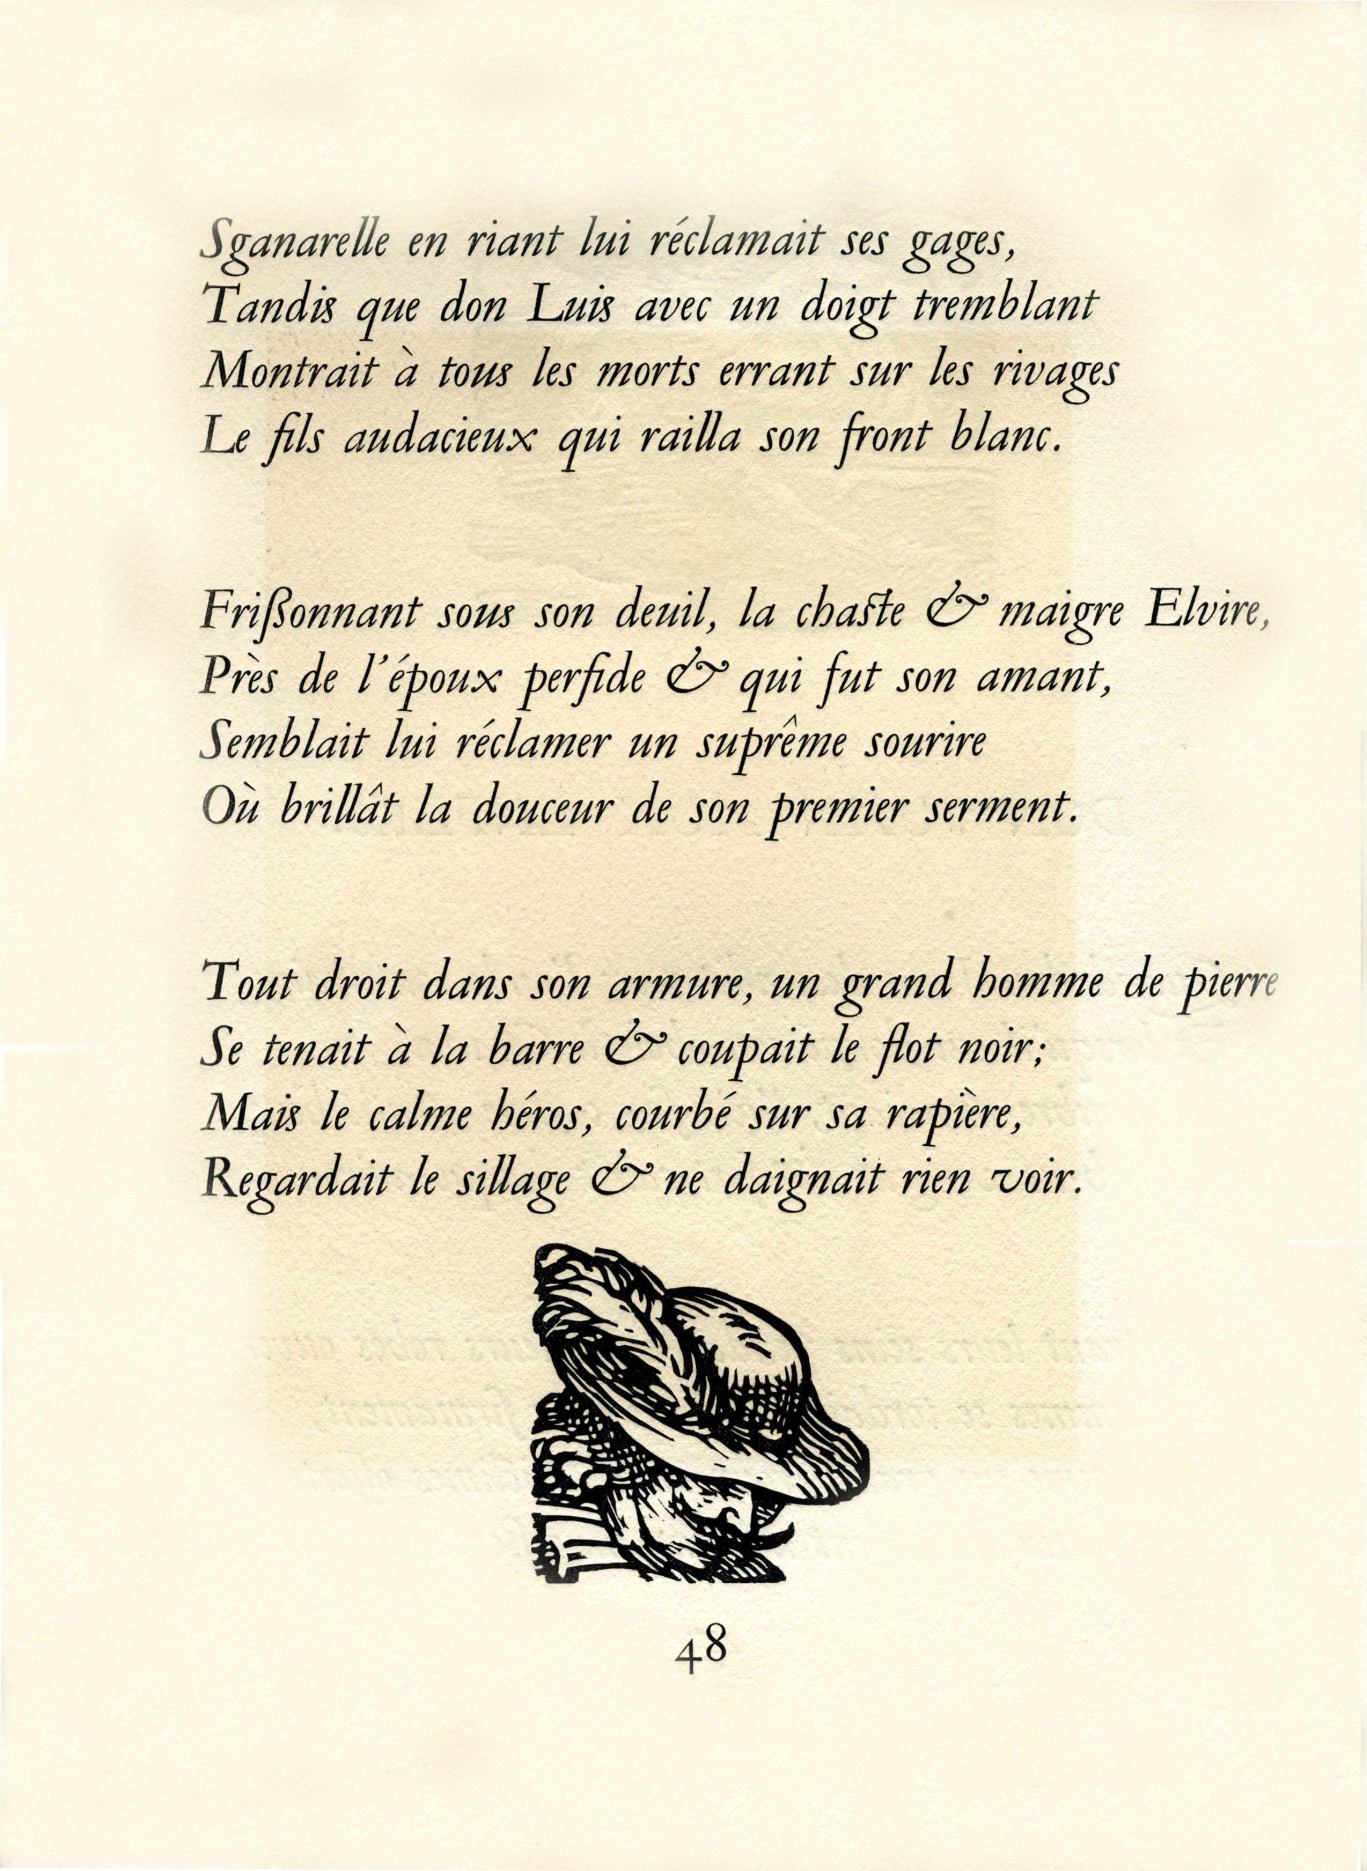 Sganarelle en riant lui réclamait ses gages,
Tandis que don Luis avec un doigt tremblant
Montrait à tous les morts errant sur les rivages
Le fils audacieux qui railla son front blanc.
Frißonnant sous son deuil, la chaste & maigre Elvire,
Près de l'époux perfide & qui fut son amant,
Semblait lui réclamer un suprême sourire
Où brillât la douceur de son premier serment.
Tout droit dans son armure, un grand homme de pierre
Se tenait à la barre & coupait le flot noir;
Mais le calme héros, courbé sur sa rapière,
Regardait le sillage & ne daignait rien voir.
48